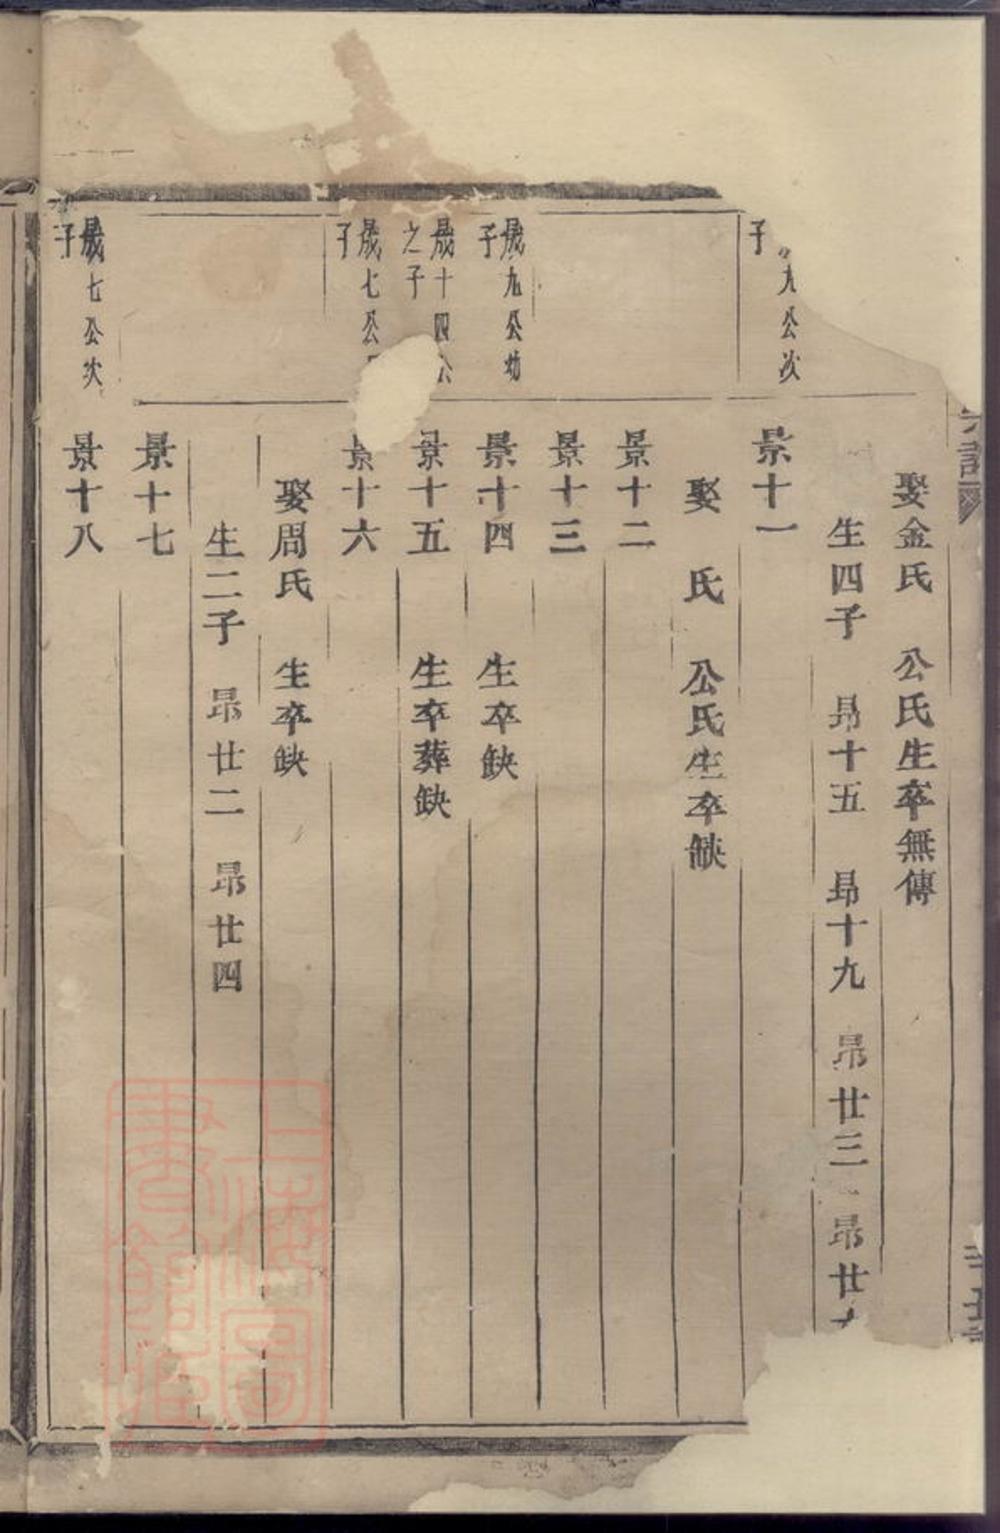 娶金氏 公氏生卒無傳
生四子 昻十五 昻十九 昻廿三 昻廿
九公次子
景十一
娶 氏 公氏生卒缺
景十二
景十三
晟九公幼子
景十四 生卒缺
晟十四公之子
景十五 生卒葬缺
晟七公子
景十六
娶周氏 生卒缺
生二子 昻廿二 昻廿四
景十七
晟七公次子
景十八
上海圖書館藏